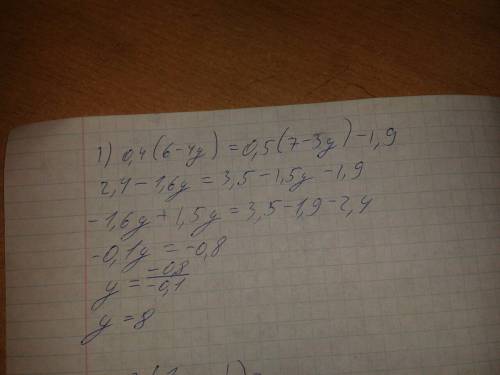 1) 0,4(6-4y)=0,5(7-3y)-1,9
2,4-1,6y=3,5-1,5y-1,9
-1,6y+1,5y=3,5-1,9-2,4
-0,1y=-0,8
y=-0,8/-0,1
y=8